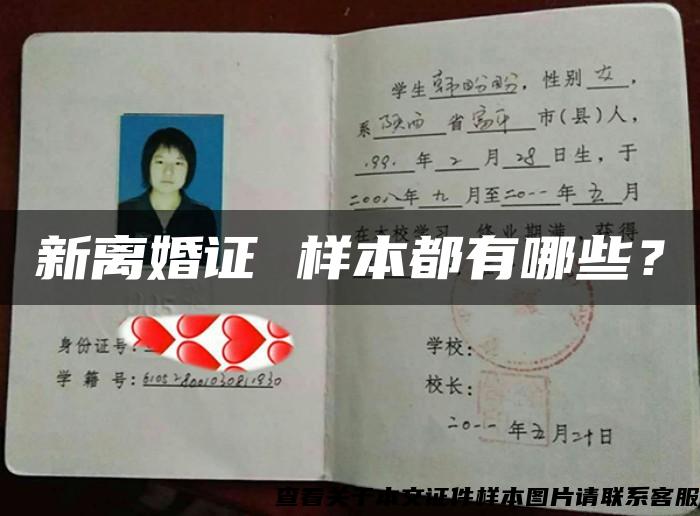 学生韩盼盼，性别女，
系陕西省富平市(县)人，
.99.年2月28日生，于
二00八年九月至二0一一年五月
在本校学习，修业期满，获得
新离婚证 样本都有哪些？
身份证号：
学籍号：610528001030811930
学校：
校长：
二0一一年五月二十日
查看关于本文证件样本图片请联系客服